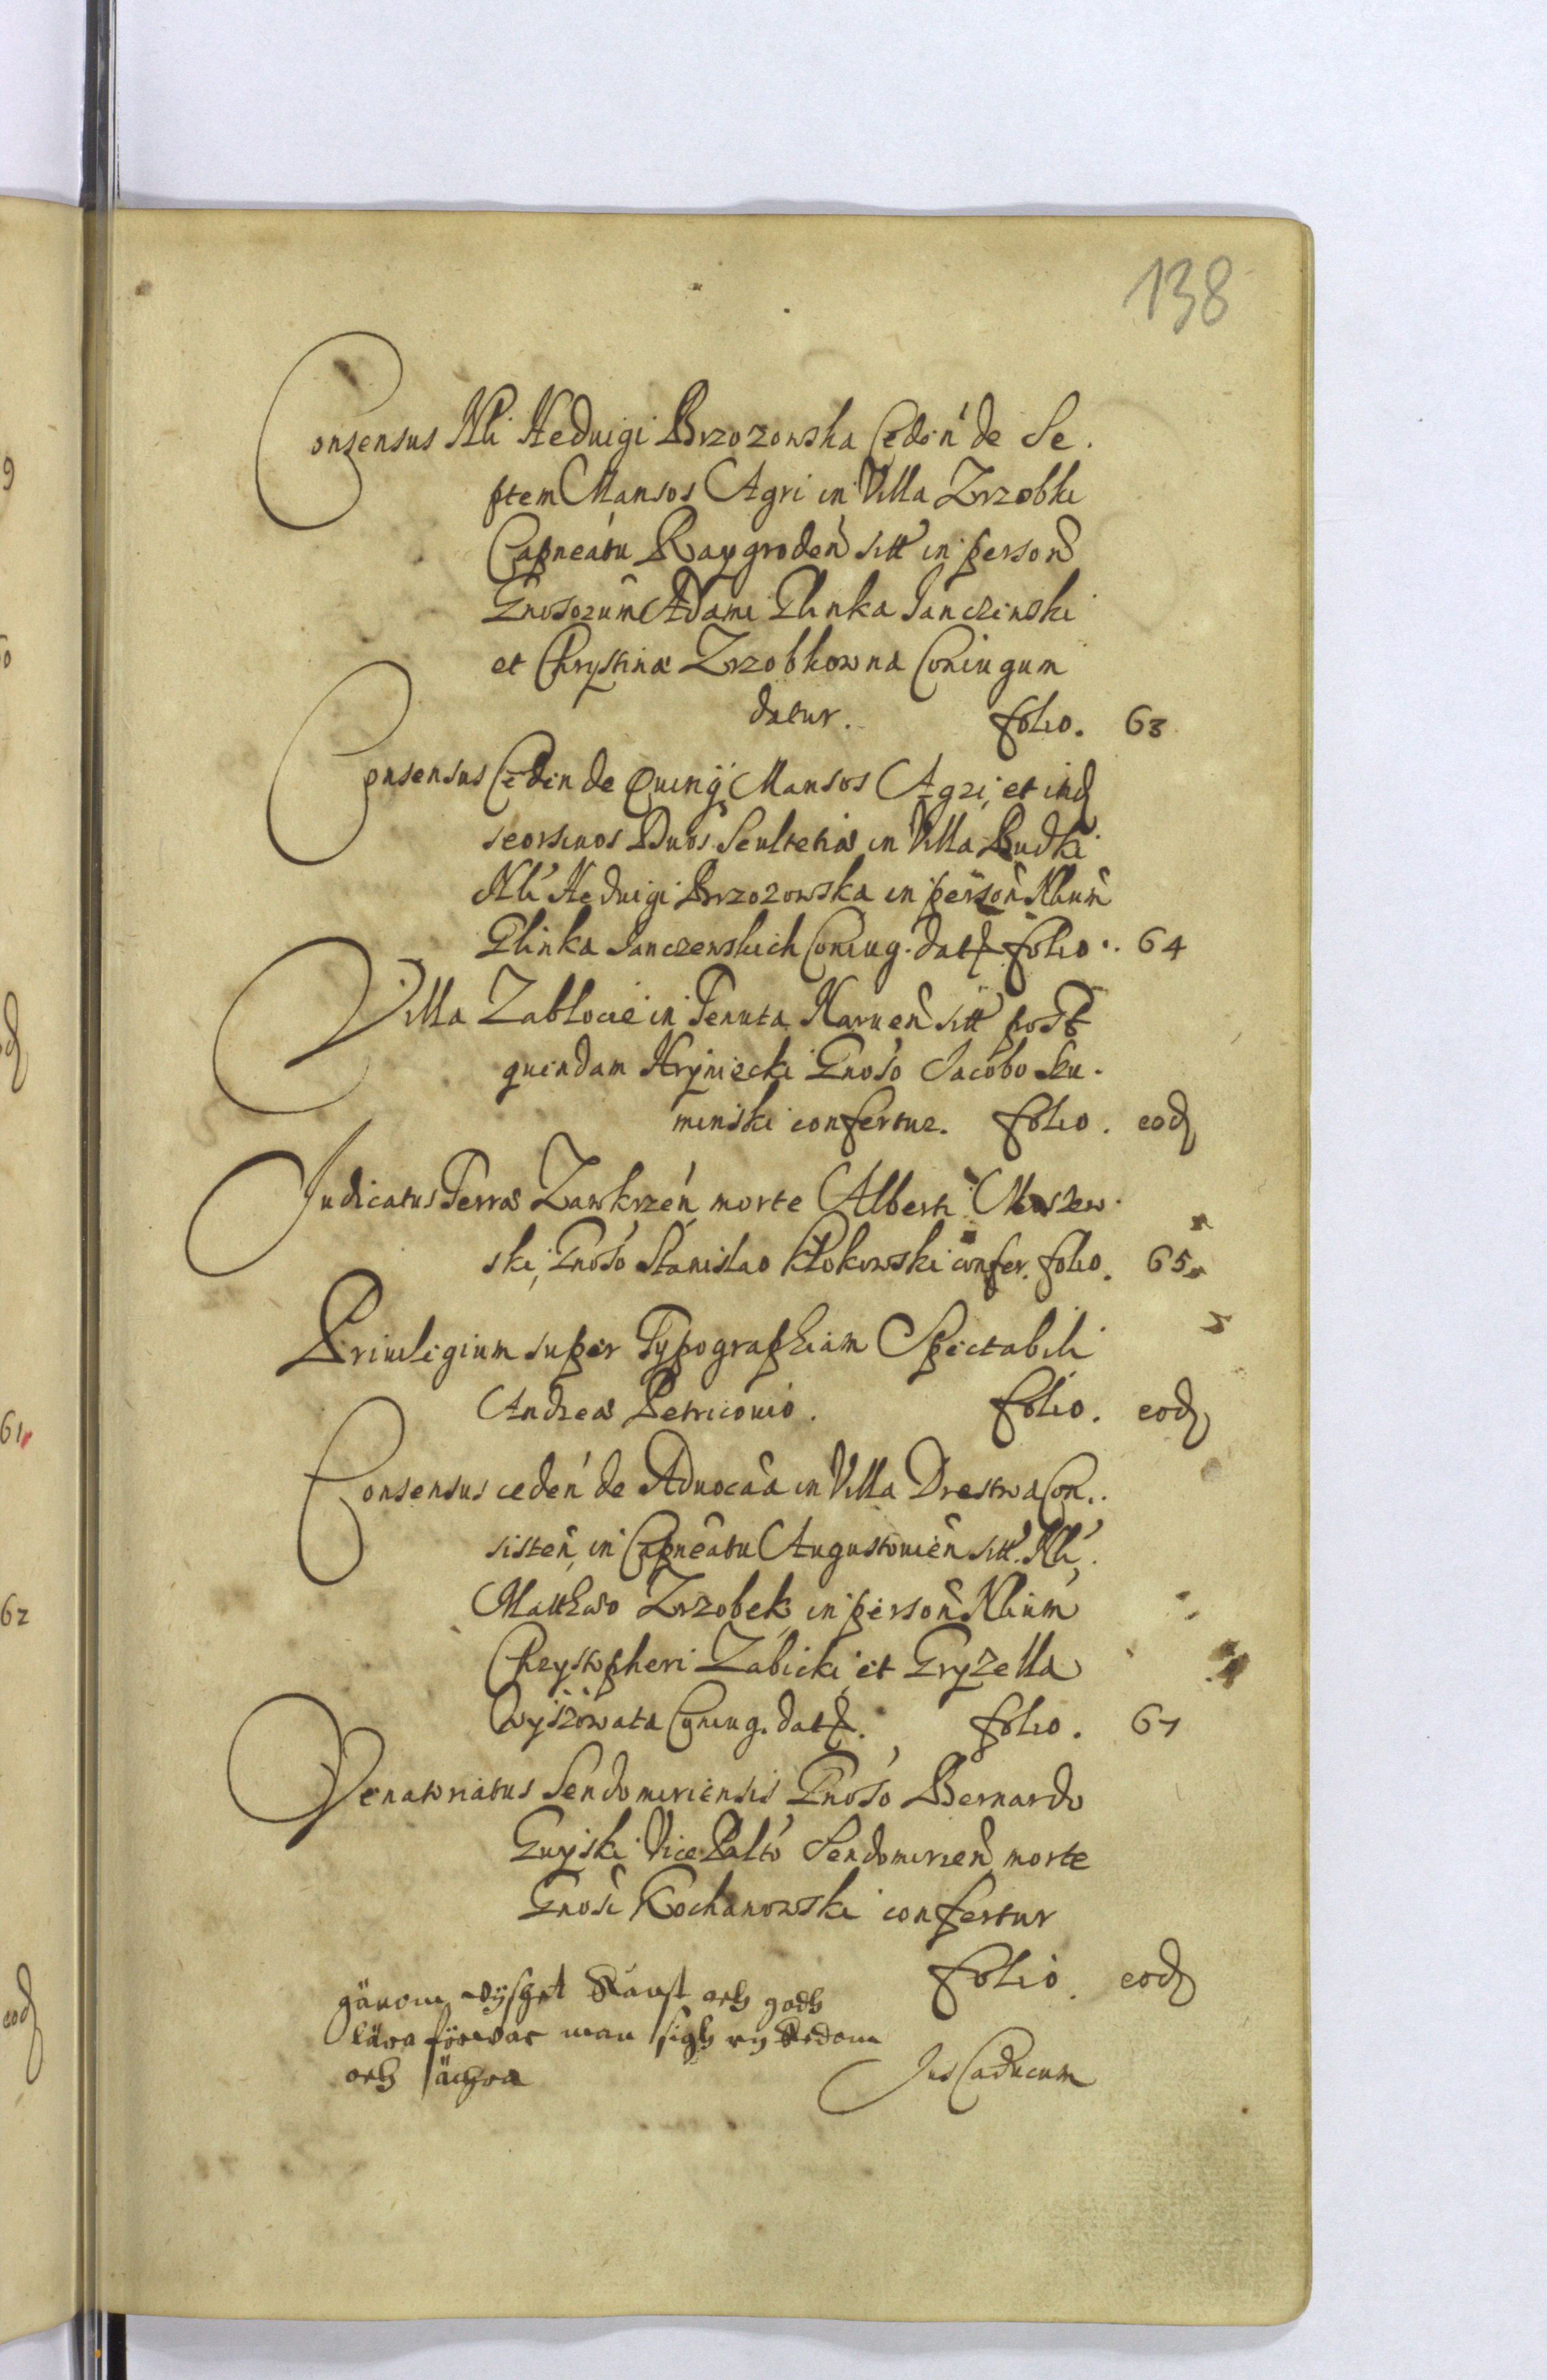 138
Consensus Nli Heduigi Brzozowska Cedeń de Se.
ptem Mansos Agri in Villa Zrzobki
Capneatu Raygrodeń sitt in person
Gnosorum Adami Glinka Janczinski
et Chrystinæ Zrzobkowna Coniugum
datur. folio. 63
Consensus Cedén de Quinq Mansos Agri, et ind
seorsiuos Duos Scultetias in Villa Budki
Nli Heduigi Brzozowska in person Nlium
Glinka Janczewskich Coniug. datr folio. 64
Villa Zablocie in Tenuta Naruen sitt post
quendam Hryniecki Gnoso Jacobo Ku.
minski confertur. folio. eod
Judicatus Terræ Zawkrzeń morte Alberti Moszew.
ski, Gnoso Stanislao Klokowski confer. folio. 65
Priuilegium super Typographiam Spectabili
Andreæ Petricouio. folio. eod
Consensus cedeń de Aduocaâ in Villa Drestwa Con..
sisteń in Capneatu Augustouień sitt. Nli.
Matthæo Zrzobek in person Nlium
Chrystopheri Zabicki et Gryzella
Wyszowata Coniug. datr. folio. 67
Venatoriatus Sendomiriensis Gnoso Bernardo
Guyski Vice Palto Sendomirien morte
Gnosi Kochanowski confertur
folio. eod
gänom wijshet Kånst och godh
lära förwar man sigh rij
och
Jus Caducum
9
0
od
61
62
eod